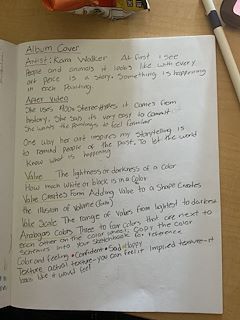 Album Cover
Artist: Kara Walker At first I see
People and animals it looks like with every
art piece is a story. Something is happening
in each Painting.
After video
She uses Stereotypes it comes from
history. She says its very easy to commit
She wants the paintings to feel familiar
One way her art inspires my storytelling is
to remind people of the past. To let the world
Know what is happening
Value The lightness or darkness of a color
How much white or black is in a Color
Value Creates form Adding Value to a Shape Creates
the illusion of Volume (form)
Value Scale The range of Values from lightest to darkest
Analogous Colors Three to four colors that are next to
each other on the color wheel. Copy the color
Schemes into your Sketchbook for reference
Color and feeling • Confident • Sad • Happy
Texture actual texture-you can feel it Implied texture-it
looks like it would feel